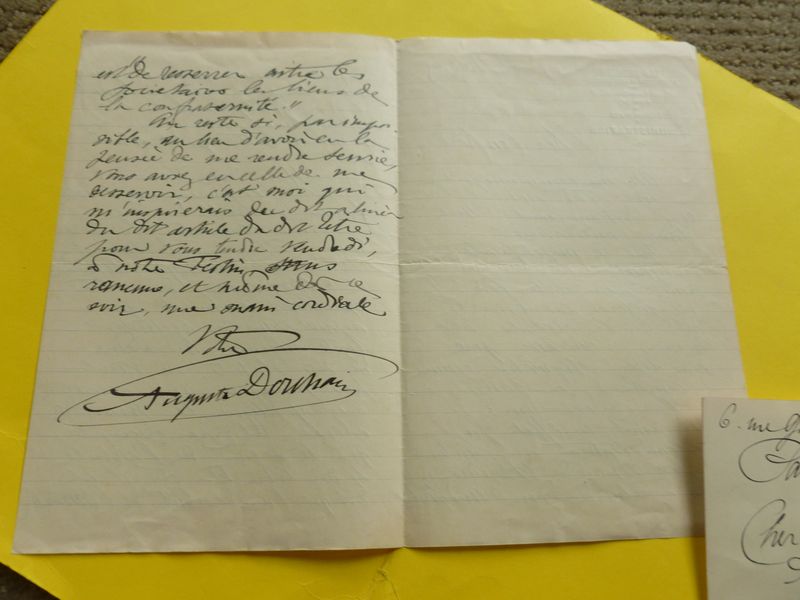 est "de resserrer entre les
sociétaires les liens de
la confraternité."
Au reste si, par impos-
sible, au lieu d'avoir eu la
pensée de me rendre service,
vous avez eu celle de me
desservir, c'est moi qui
m'inspirerais du dit alinéa
du dit article du dit titre
pour vous tendre vendredi,
à notre festin, sans
rancune, et même dès ce
soir, une main cordiale
Votre
Auguste Dorchain
6 rue
Cher